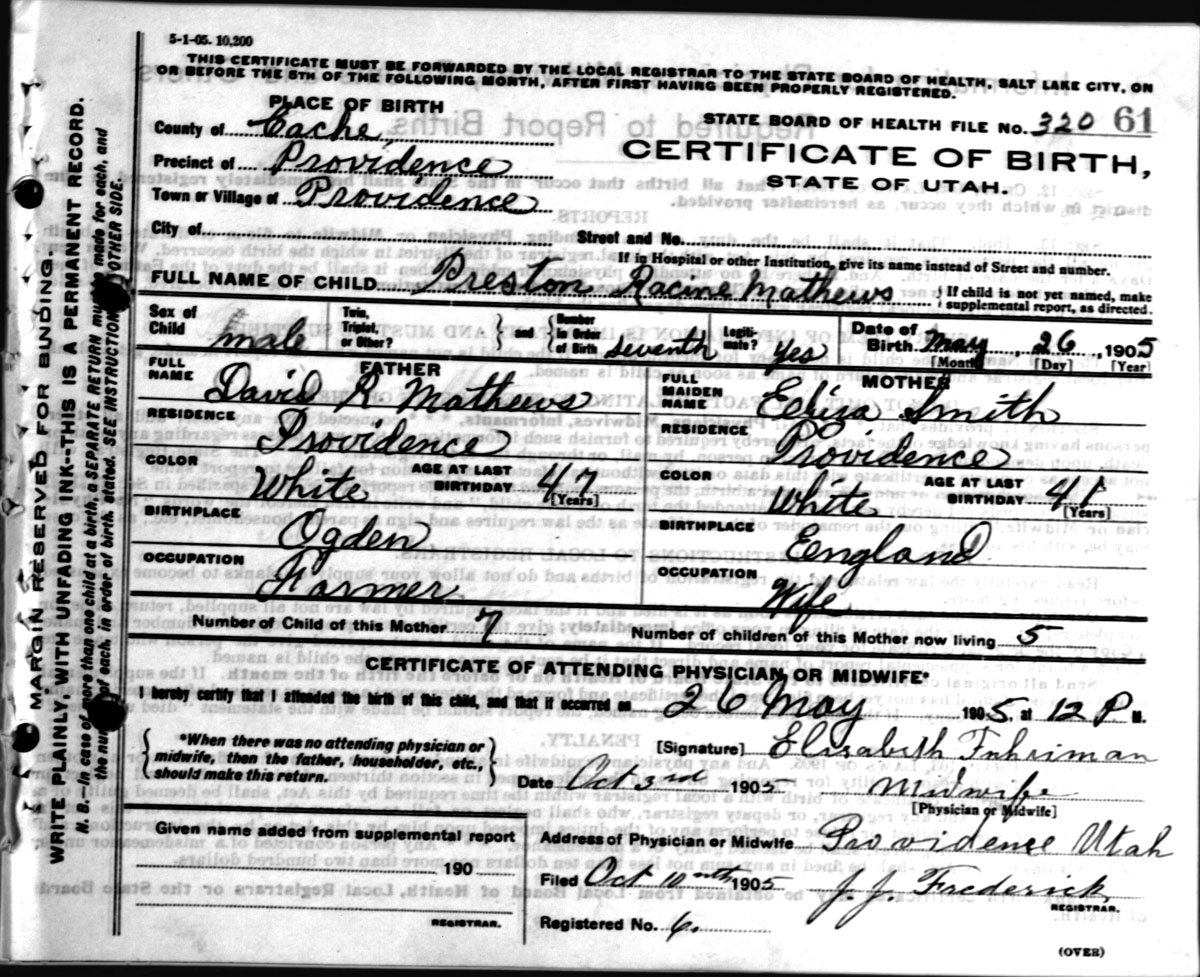 5-1-05. 10,200
THIS CERTIFICATE MUST BE FORWARDED BY THE LOCAL REGISTRAR TO THE STATE BOARD OF HEALTH, SALT LAKE CITY, ON
OR BEFORE THE 5TH OF THE FOLLOWING MONTH, AFTER FIRST HAVING BEEN PROPERLY REGISTERED.
PLACE OF BIRTH
STATE BOARD OF HEALTH FILE No. 320 61
County of Cache,
CERTIFICATE OF BIRTH,
Precinct of Providence
STATE OF UTAH.
Town or Village of Providence
City of
Street and No.
If in Hospital or other Institution, give its name instead of Street and number.
FULL NAME OF CHILD Preston Racine Mathews
If child is not yet named, make
supplemental report, as directed.
Sex of Child male
Twin, Triplet, or Other?
and
Number in Order of Birth seventh
Legiti-mate? yes
Date of Birth May, 26, 1905
[Month] [Day] [Year]
FATHER
FULL NAME David R. Mathews
RESIDENCE Providence
COLOR White
AGE AT LAST BIRTHDAY 47
[Years]
BIRTHPLACE Ogden
OCCUPATION Farmer
MOTHER
FULL MAIDEN NAME Eliza Smith
RESIDENCE Providence
COLOR White
AGE AT LAST BIRTHDAY 41
[Years]
BIRTHPLACE England
OCCUPATION Wife
Number of Child of this Mother 7
Number of children of this Mother now living 5
CERTIFICATE OF ATTENDING PHYSICIAN OR MIDWIFE*
I hereby certify that I attended the birth of this child, and that it occurred on 26 May 1905, at 12 P. M.
*When there was no attending physician or
midwife, then the father, householder, etc.,
should make this return.
[Signature] Elisabeth Fuhriman
Date Oct 3rd 1905 Midwife
[Physician or Midwife]
Given name added from supplemental report
190
REGISTRAR.
Address of Physician or Midwife Providence Utah
Filed Oct 1905 J. J. Frederick
REGISTRAR.
Registered No. 6.
(OVER)
MARGIN RESERVED FOR BINDING.
WRITE PLAINLY, WITH UNFADING INK--THIS IS A PERMANENT RECORD.
N. B.--In case of more than one child at a birth, a SEPARATE RETURN must be made for each, and
the number of each, in order of birth, stated. SEE INSTRUCTIONS OTHER SIDE.